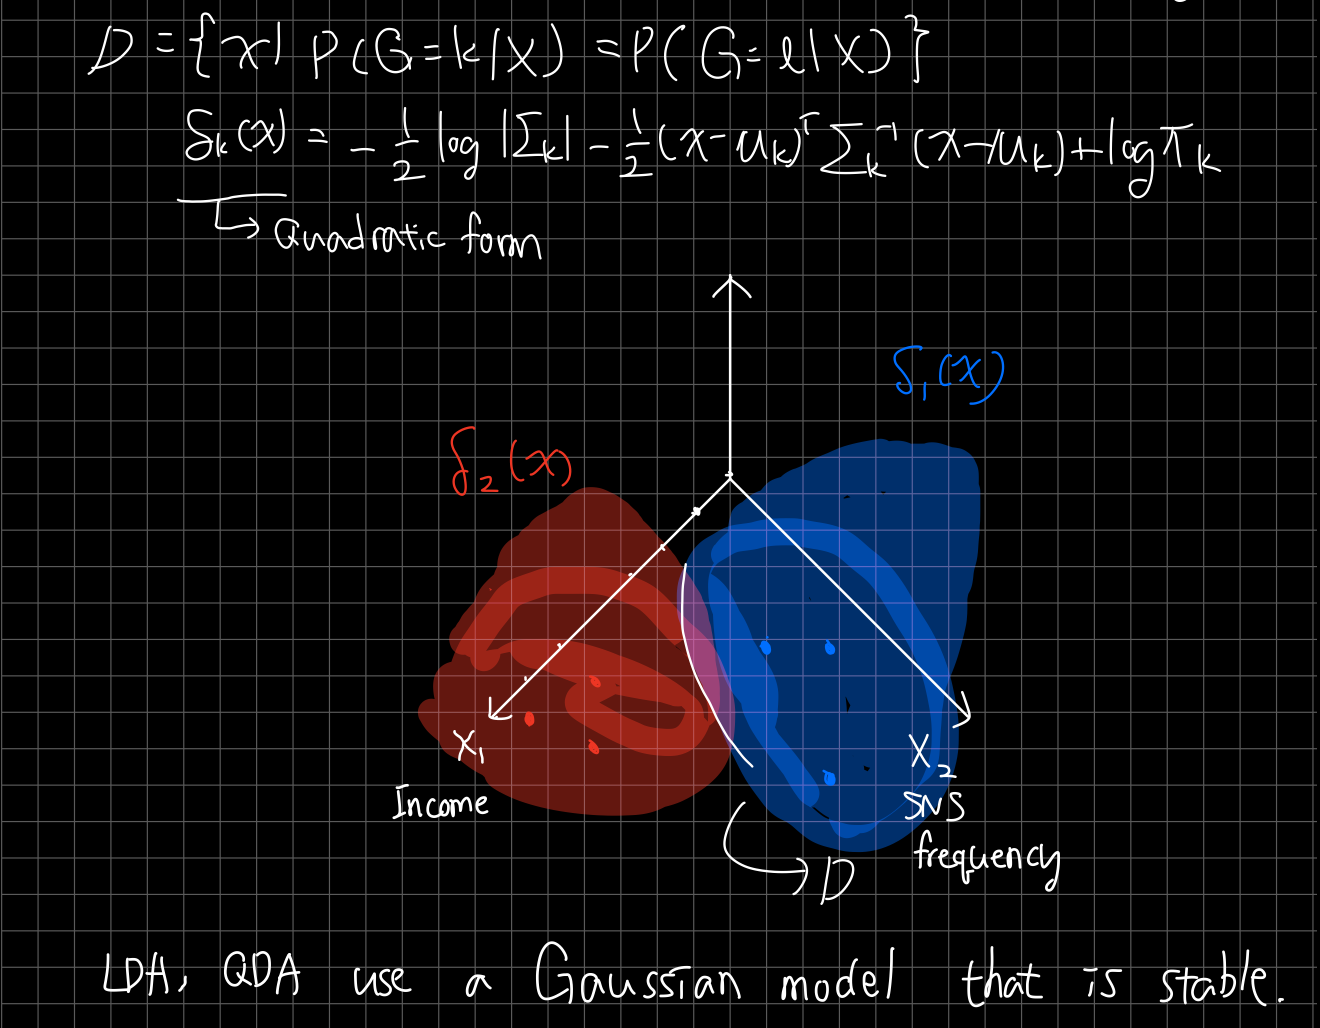 D = {x| P(G=k|X) = P(G=l|X)}
δk(x) = -1/2 log |Σk| - 1/2 (x-μk)ᵀ Σk⁻¹ (x-μk) + log πk
↳ Quadratic form
δ1(x)
δ2(x)
X1
Income
X2
SNS
frequency
D
LDA, QDA use a Gaussian model that is stable.